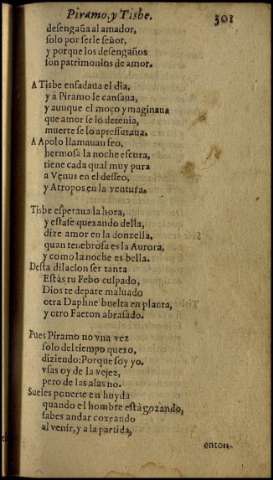 Piramo, y Tisbe. 301
desengaña al amador,
solo por serle señor,
y porque los desengaños
son patrimonios de amor.
A Tisbe enfadaua el dia,
y a Piramo le cansaua,
y aunque el moço ymaginaua
que amor se lo detenia,
muerte se lo apressuraua.
A Apolo llamauan feo,
hermosa la noche escura,
tiene cada qual muy pura
a Venus en el desseo,
y Atropos en la ventura.
Tisbe esperaua la hora,
y estase quexando della,
dize amor en la donzella,
quan tenebrosa es la Aurora,
y como la noche es bella.
Desta dilacion ser tanta
Estás tu Febo culpado,
Dios te depare maluado
otra Daphne buelta en planta,
y otro Faeton abrasado.
Pues Piramo no vna vez
solo del tiempo quexo,
diziendo: Porque soy yo.
vsas oy de la vejez,
pero de las alas no.
Sueles ponerte en huyda
quando el hombre està gozando,
sabes andar coxeando
al venir, y a la partida,
enton-